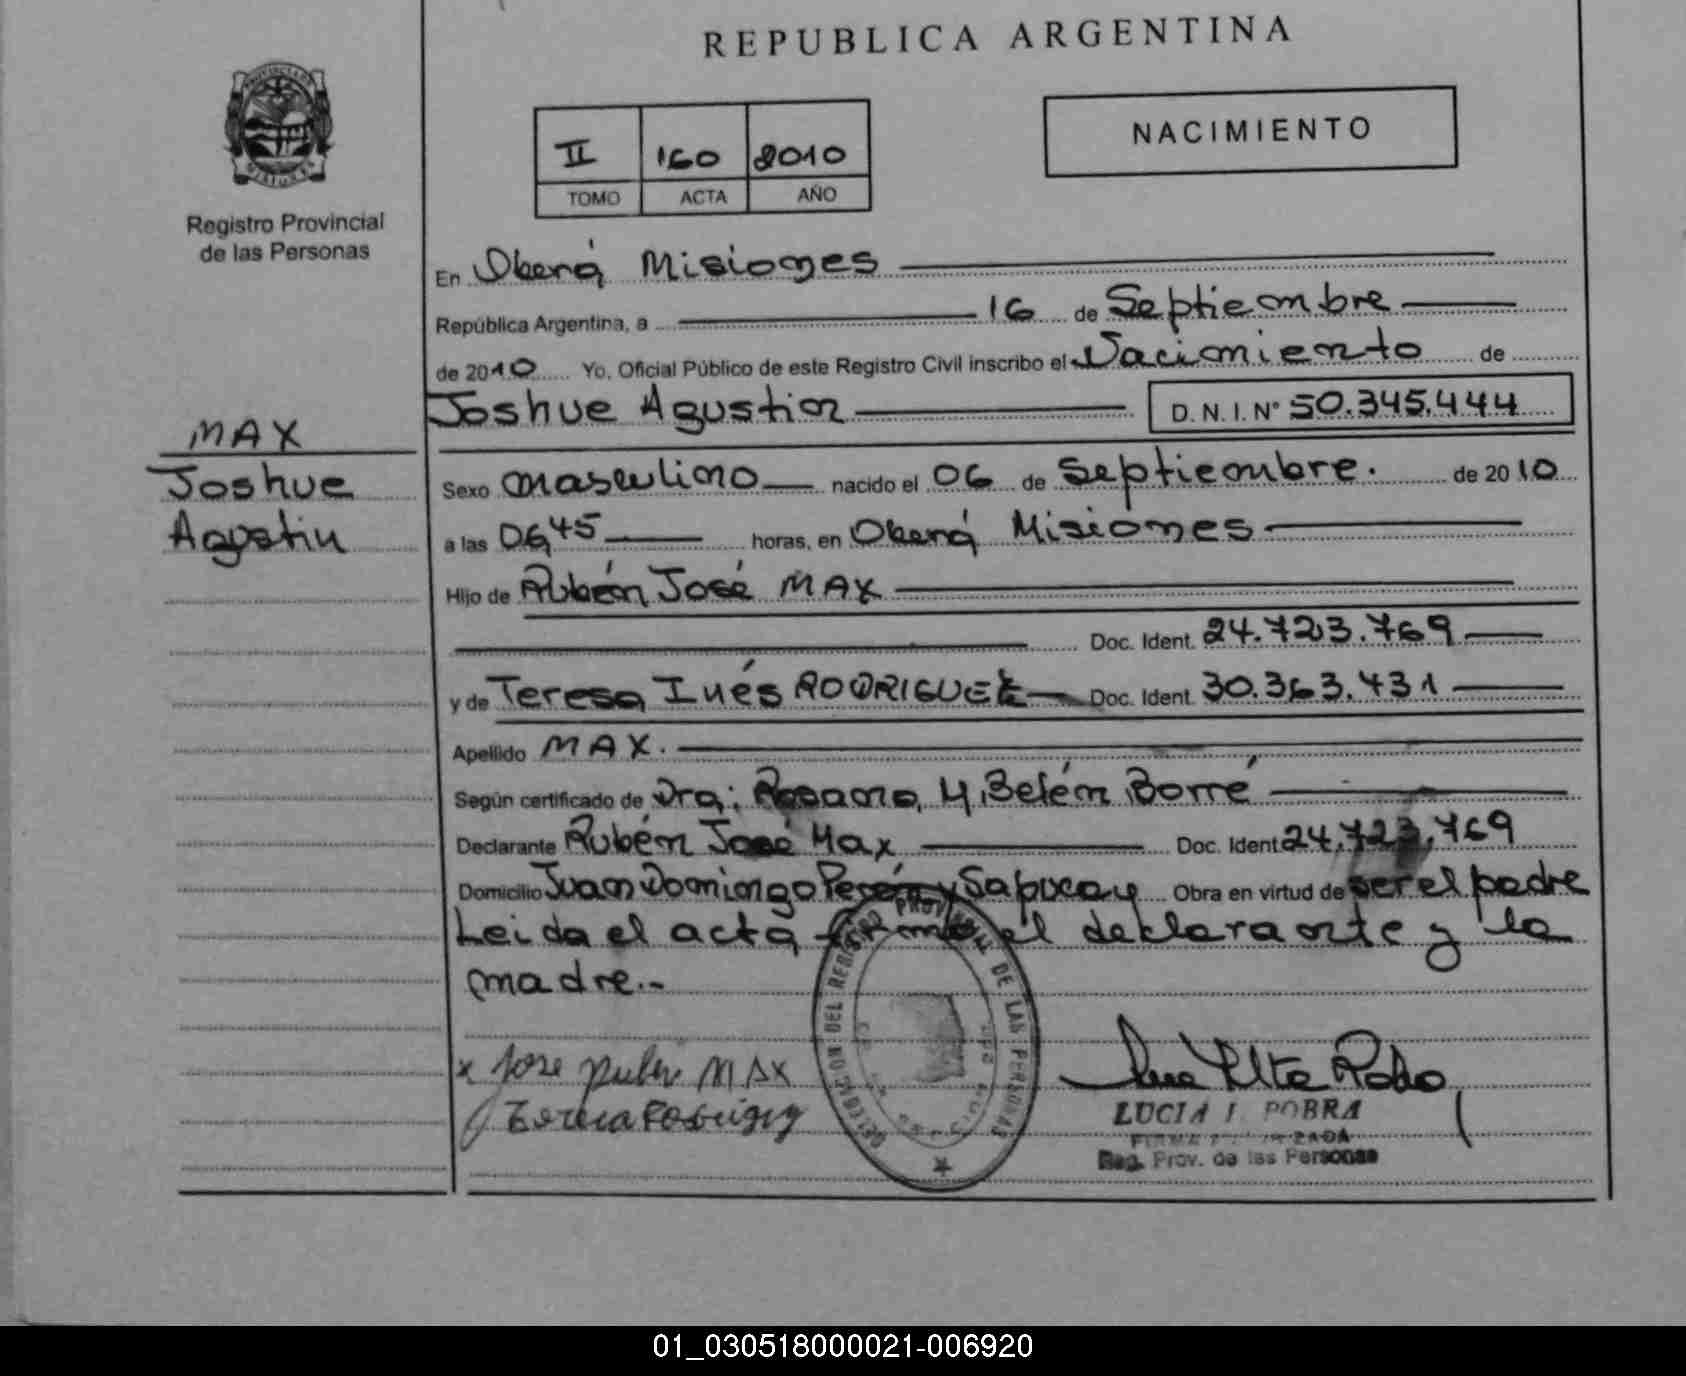 REPUBLICA ARGENTINA
NACIMIENTO
II 160 2010
TOMO ACTA AÑO
Registro Provincial
de las Personas
En Oberá Misiones
República Argentina, a 16 de Septiembre
de 2010 Yo, Oficial Público de este Registro Civil inscribo el Nacimiento de
Joshue Agustin D.N.I.N° 50.345.444
MAX
Joshue
Agustin
Sexo masculino nacido el 06 de Septiembre. de 2010
a las 06,45 horas, en Oberá Misiones
Hijo de Rubén José MAX
Doc. Ident. 24.723.769
y de Teresa Inés RODRIGUEZ Doc. Ident. 30.363.431
Apellido MAX.
Según certificado de Dra: Rosana, M, Belén Borré
Declarante Rubén José Max Doc. Ident. 24.723.769
Domicilio Juan Domingo Perón y Sapucay Obra en virtud de ser el padre
Leida el acta firma el declarante y la
madre.-
x Jose MAX
DEL REGISTRO PROVINCIAL DE LAS PERSONAS
LUCIA I. POBRA
Reg. Prov. de las Personas
01_030518000021-006920